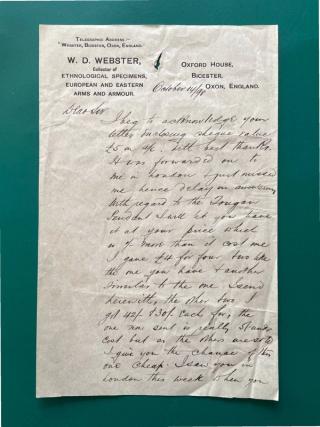 TELEGRAPHIC ADDRESS :—
"WEBSTER, BICESTER, OXON, ENGLAND.
W. D. WEBSTER,
Collector of
ETHNOLOGICAL SPECIMENS,
EUROPEAN AND EASTERN
ARMS AND ARMOUR.
OXFORD HOUSE,
BICESTER,
OXON, ENGLAND.
October 14/98
Dear Sir
I beg to acknowledge your
letter enclosing cheque value
with best thanks.
It was forwarded on to
me in London & just missed
me hence delay in answering
With regard to the Tongan
Pendant I will let you have
it at your price which
is more than it cost me
I gave £4 for four two like
the one you have & another
similar to the one I send
herewith, the other two I
got 42/- & 30/- each for, the
one now sent is really
cost but as the others are sold
I give you the chance of this
one cheap. I saw you in
London this week when you